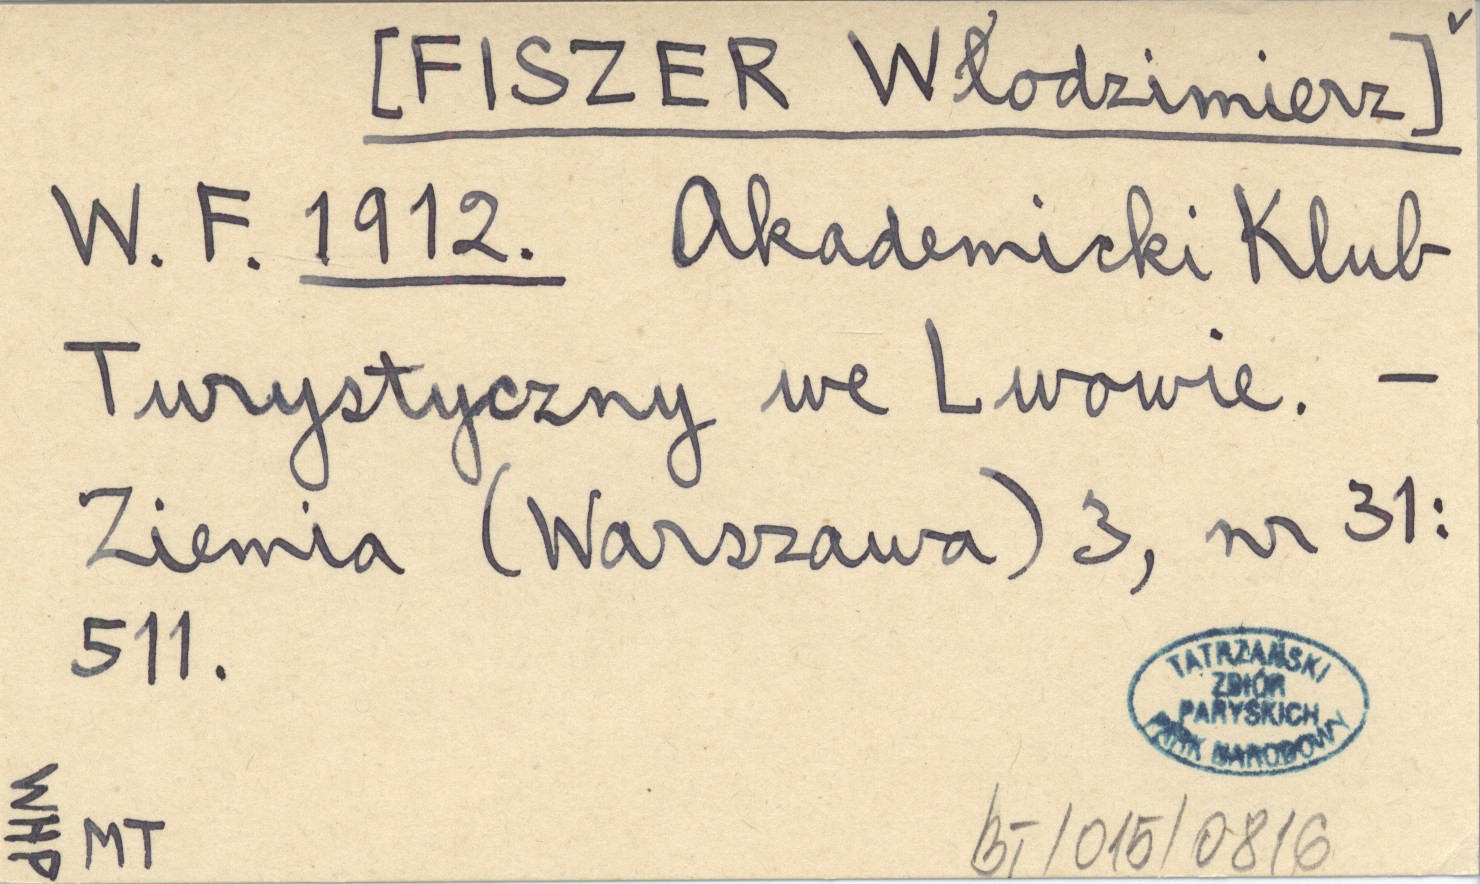 [FISZER Włodzimierz]
W. F. 1912. Akademicki Klub
Turystyczny we Lwowie. –
Ziemia (Warszawa) 3, nr 31:
511.
TATRZAŃSKI
ZBIÓR
PARYSKICH
PARK NARODOWY
WHP
MT
BT/015/0816